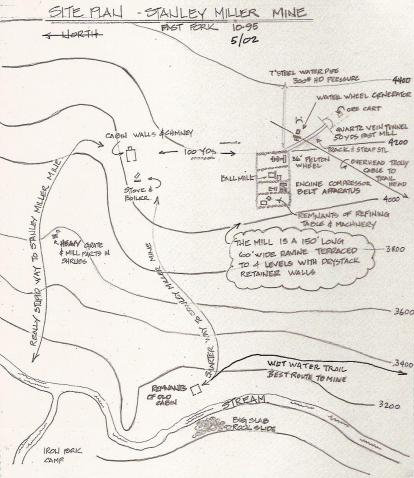 SITE PLAN - STANLEY MILLER MINE
NORTH
EAST FORK 10-95
5/02
7" STEEL WATER PIPE
300# HD PRESSURE
4400
WATER WHEEL GENERATOR
ORE CART
QUARTZ VEIN TUNNEL
50 YDS PAST MILL
4200
TRACK & STRAP STL
CABIN WALLS & CHIMNEY
100 YDS
36" PELTON
WHEEL
OVERHEAD TROLLY
CABLE TO
TRAIL
HEAD
BALL MILL
STOVE &
BOILER
ENGINE COMPRESSOR
BELT APPARATUS
4000
REMNANTS OF REFINING
TABLE & MACHINERY
REALLY STUPID WAY TO STANLEY MILLER MINE
HEAVY GRATE
& MILL PARTS IN
SHRUBS
THE MILL IS A 150' LONG
60' WIDE RAVINE TERRACED
TO 4 LEVELS WITH DRYSTACK
RETAINER WALLS
3800
SMARTER WAY TO STANLEY MILLER MINE
3600
3400
WET WATER TRAIL
BEST ROUTE TO MINE
REMNANTS
OF OLD
CABIN
3200
STREAM
BIG SLAB
ROCK SLIDE
IRON FORK
CAMP